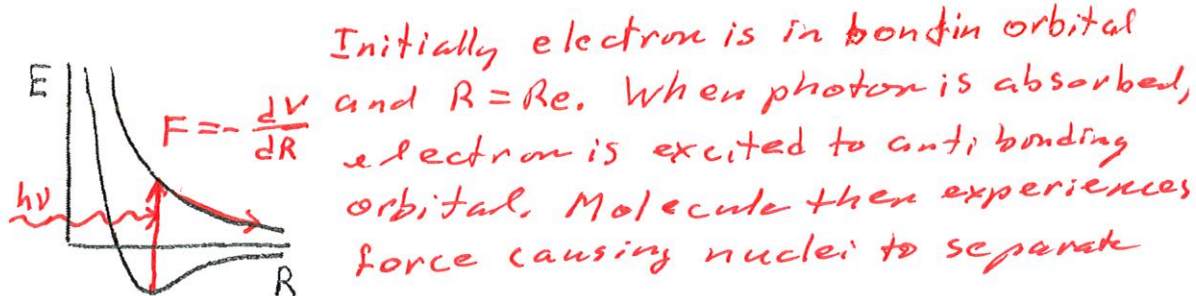 Initially electron is in bondin orbital
and R = Re. When photon is absorbed,
electron is excited to anti bonding
orbital. Molecule then experiences
force causing nuclei to separate
E
F = - dV/dR
hν
R